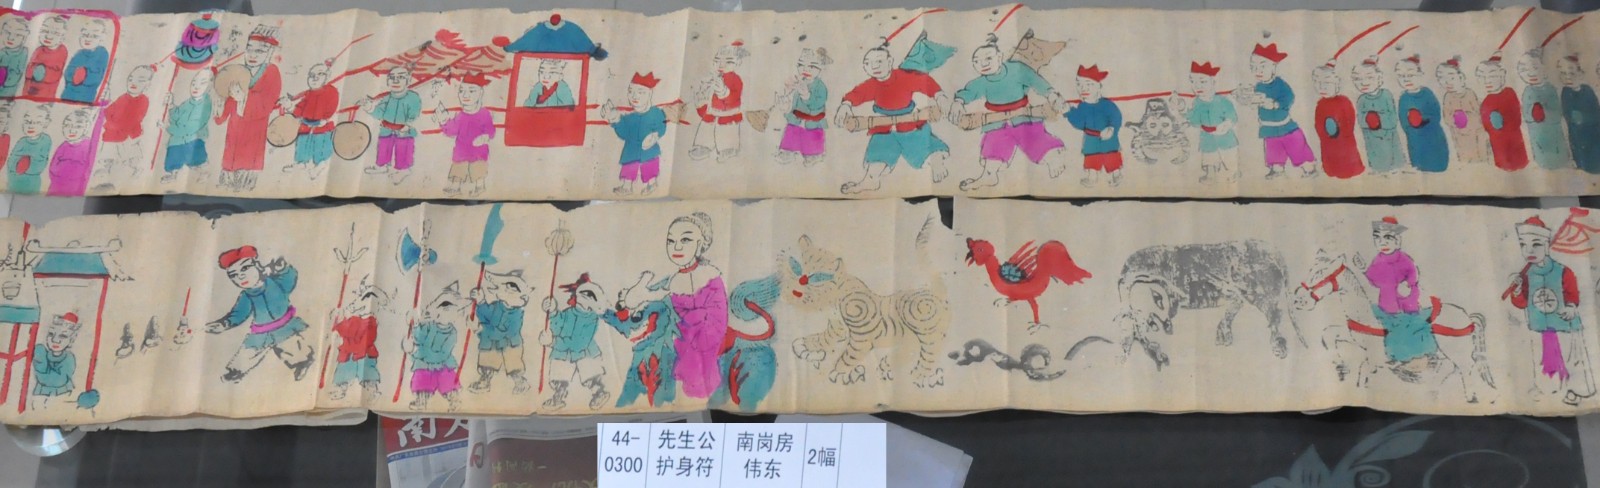 44-
0300
先生公
护身符
南岗房
伟东
2幅
南方